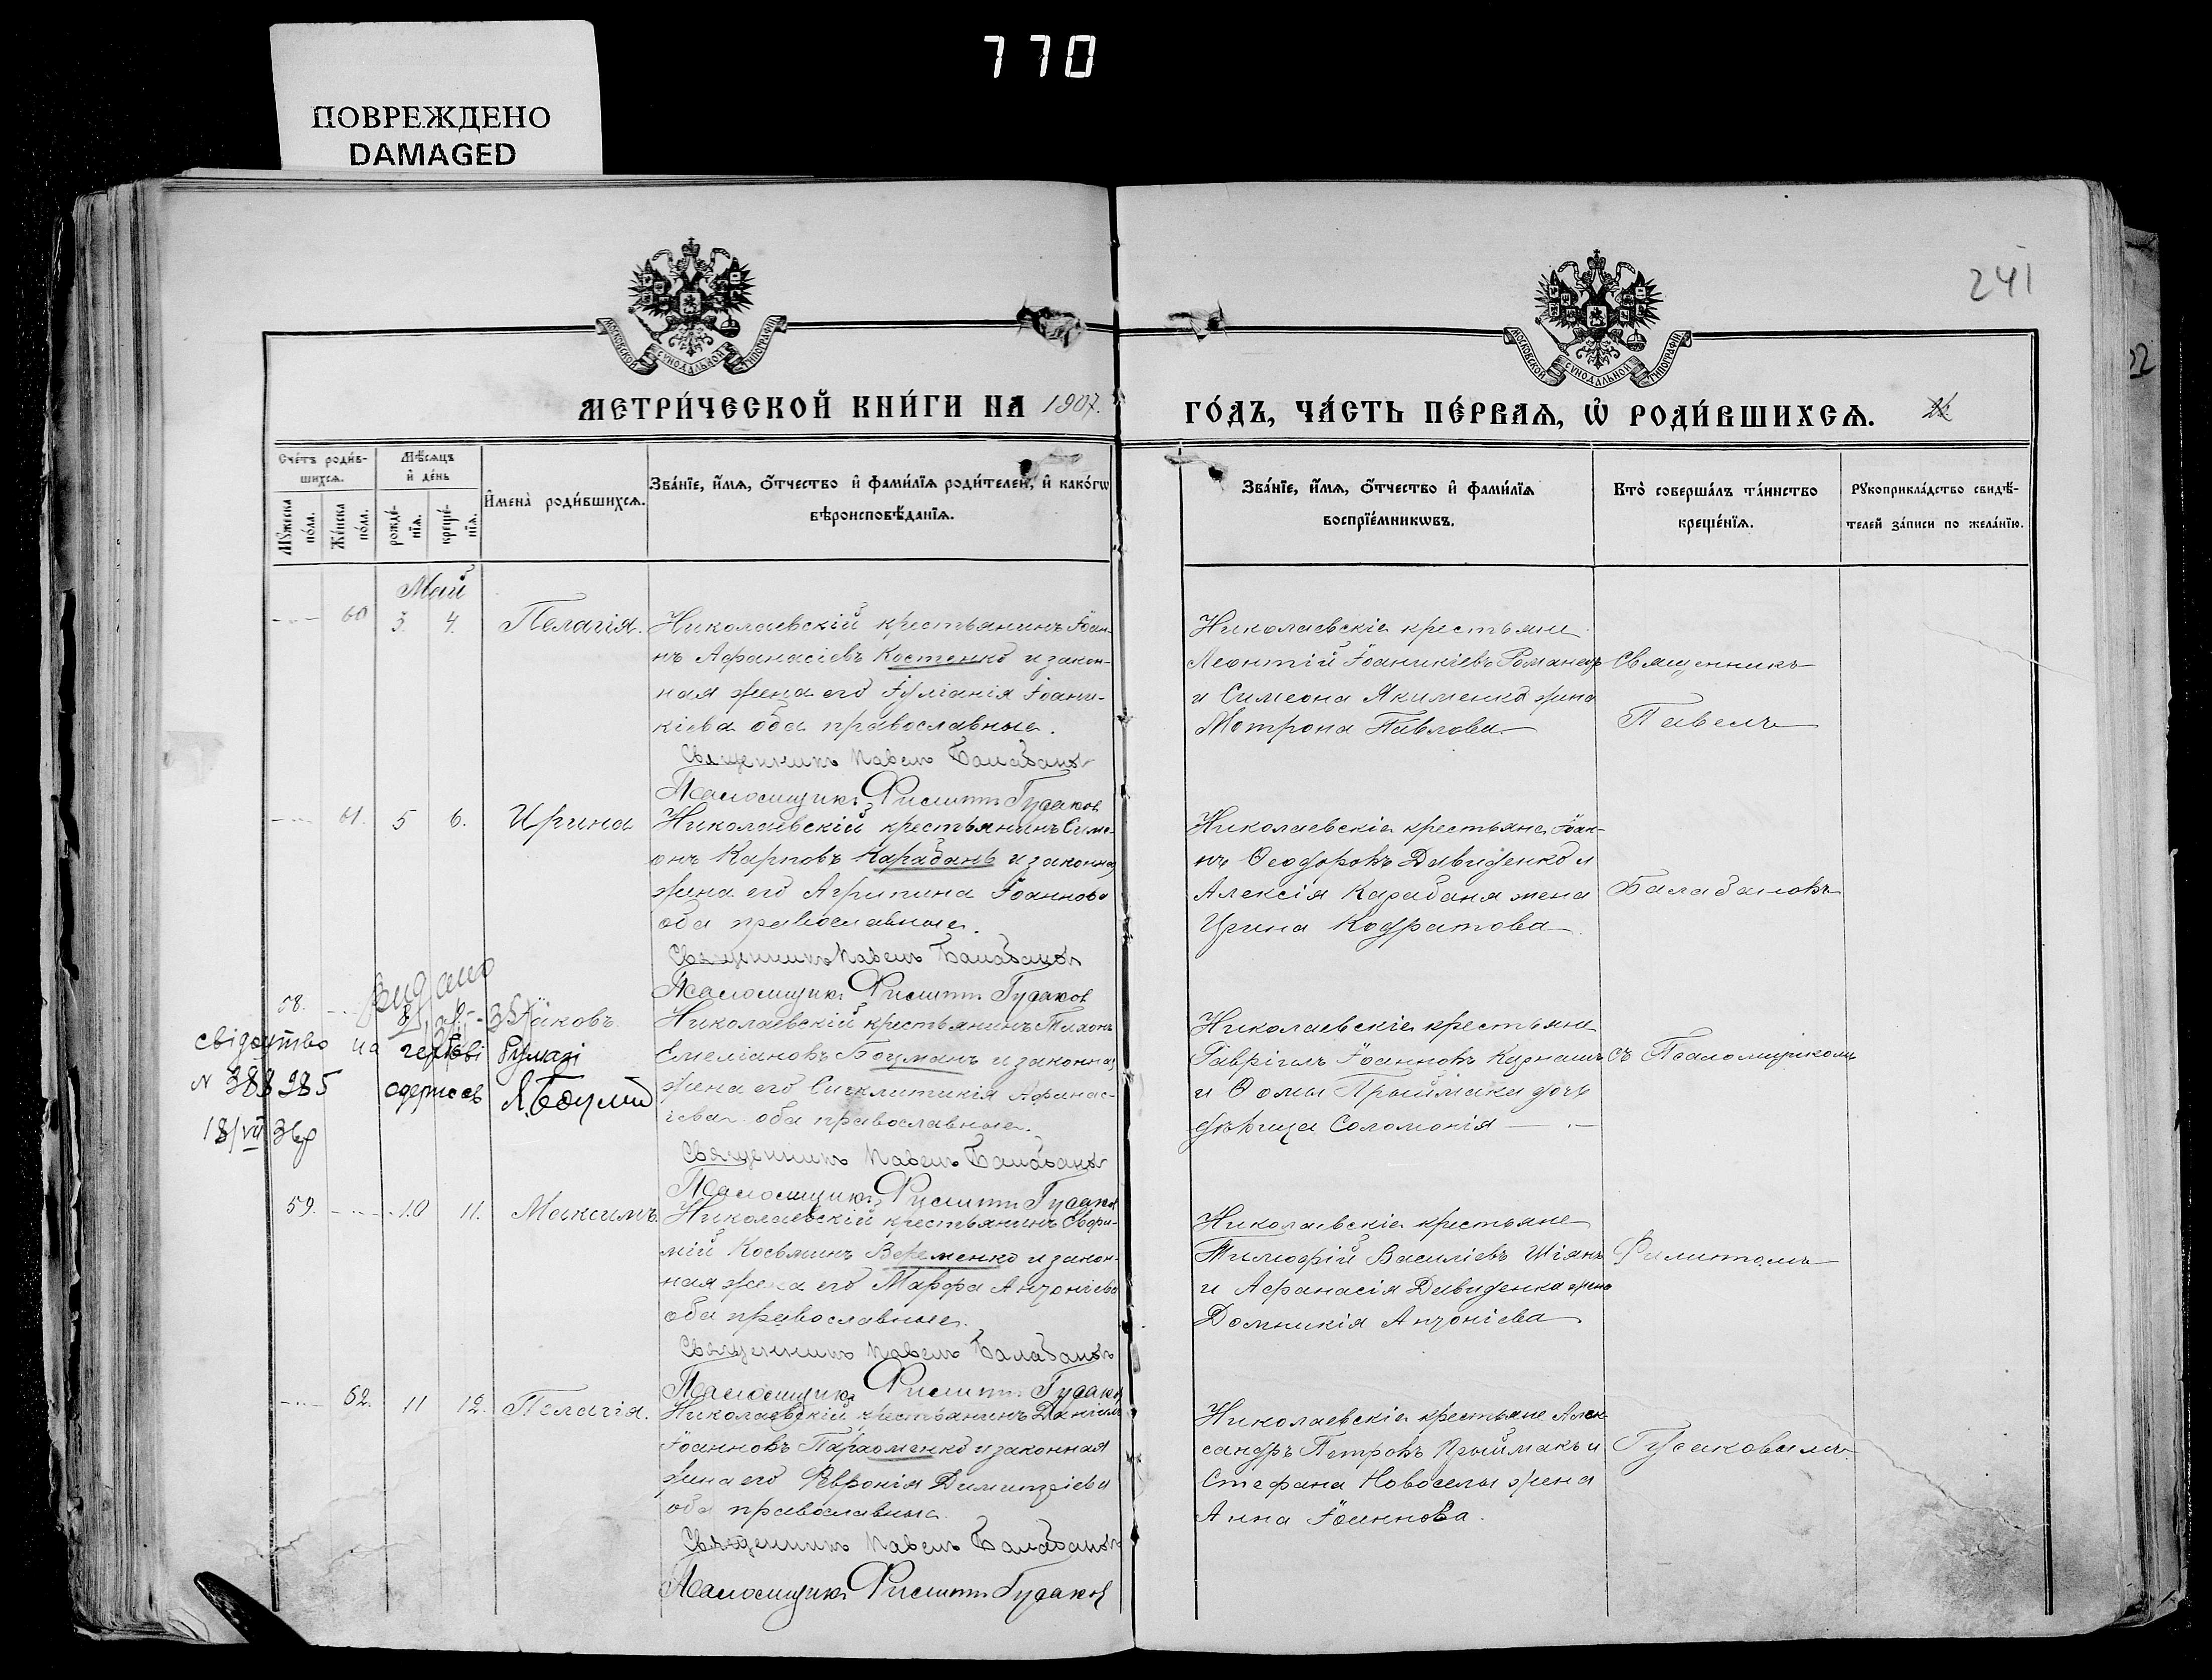 770
ПОВРЕЖДЕНО
DAMAGED
241
МОСКОВСКОЙ СѴНОДАЛЬНОЙ ТИПОГРАФІИ
МОСКОВСКОЙ СѴНОДАЛЬНОЙ ТИПОГРАФІИ
МЕТРИ́ЧЕСКОЙ КНИ́ГИ НА 1907.
ГО́ДЪ, ЧА́СТЬ ПЕ́РВАѦ, Ѡ҆ РОДИ́ВШИХСѦ.
Сче́тъ роди́в-
шихсѧ.
Мꙋ́жеска по́ла.
Же́нска по́ла.
Мѣ́сѧцъ
и҆ де́нь
рожде́-
нїѧ.
креще́-
нїѧ.
И҆мена̀ роди́вшихсѧ.
Зва́нїе, и҆́мѧ, ѻ҆́тчество и҆ фами́лїѧ роди́телей, и҆ како́гѡ
вѣроисповѣ́данїѧ.
Зва́нїе, и҆́мѧ, ѻ҆́тчество и҆ фами́лїѧ
воспрїе́мникѡвъ.
Кто̀ соверша́лъ та́инство
креще́нїѧ.
Рꙋкоприкла́дство свидѣ́-
телей за́писи по жела́нїю.
Май
60 3. 4. Пелагія.
Николаевскій крестьянинъ Іоан-
нъ Афанасіевъ Костенко и закон-
ная жена его Іуліанія Іоани-
кіева оба православные.
Священникъ Павелъ Балабановъ
Псаломщикъ Филиппъ Гусаков
Николаевскіе крестьяне
Леонтій Іоаникіевъ Романецъ
и Симеона Якименко жена
Мотрона Павлова
Священникъ
Павелъ
61. 5 6. Ирина
Николаевскій крестьянинъ Симе-
онъ Карповъ Карабань и законная
жена его Агрипина Іоаннова
оба православные.
Священникъ Павелъ Балабановъ
Псаломщикъ Филиппъ Гусаков
Николаевскіе крестьяне Іоан-
нъ Ѳеодоровъ Давиденко и
Алексія Карабаня жена
Ирина Кодратова
Балабановъ
58. Іаковъ
Видано
свідоцтво на гербові бумазі
N 388985 одержав Я. Боцман
18/VII 36р
Николаевскій крестьянинъ Тихонъ
Емеліановъ Боцманъ и законная
жена его Сигклитикія Афанась-
ева оба православные.
Священникъ Павелъ Балабановъ
Псаломщикъ Филиппъ Гусаков
Николаевскіе крестьяне
Гавріилъ Іоанновъ
и Ѳомы Прыймака дочь
дѣвица Соломонія
съ Псаломщикомъ
59. 10 11. Максимъ.
Николаевскій крестьянинъ Евфи-
мій Косьминъ Веременко и закон-
ная жена его Марфа Антоніева
оба православные.
Священникъ Павелъ Балабановъ
Псаломщикъ Филиппъ Гусаков
Николаевскіе крестьяне
Тимофій Василіевъ Шіянъ
и Афанасія Давиденка жена
Домникія Антоніева
Филиппомъ
62. 11 12. Пелагія.
Николаевскій крестьянинъ Даніилъ
Іоанновъ Пархоменко и законная
жена его Февронія Димитріева
оба православные
Священникъ Павелъ Балабановъ
Псаломщикъ Филиппъ Гусаков
Николаевскіе крестьяне Алек-
сандръ Петровъ Прыймакъ и
Стефана Новоселы жена
Анна Іоаннова.
Гусаковымъ